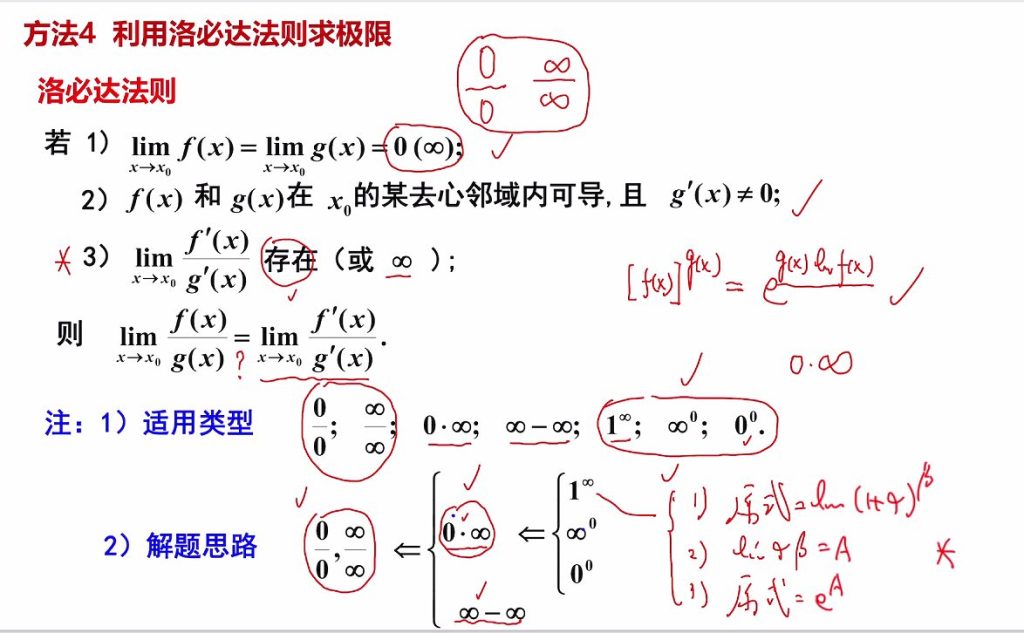 方法4 利用洛必达法则求极限
0/0 ∞/∞
洛必达法则
若 1) lim_{x→x₀} f(x) = lim_{x→x₀} g(x) = 0 (∞);
2) f(x) 和 g(x)在 x₀的某去心邻域内可导, 且 g′(x) ≠ 0;
* 3) lim_{x→x₀} f′(x)/g′(x) 存在 (或 ∞ );
[f(x)]^{g(x)} = e^{g(x) ln f(x)}
则 lim_{x→x₀} f(x)/g(x) = lim_{x→x₀} f′(x)/g′(x).
?
0·∞
注: 1) 适用类型 0/0; ∞/∞; 0·∞; ∞−∞; 1^∞; ∞⁰; 0⁰.
2) 解题思路 0/0, ∞/∞ ⇐ { 0·∞ ∞−∞ ⇐ { 1^∞ ∞⁰ 0⁰
1) 原式=lim(1+α)^β
2) lim αβ = A *
3) 原式= e^A